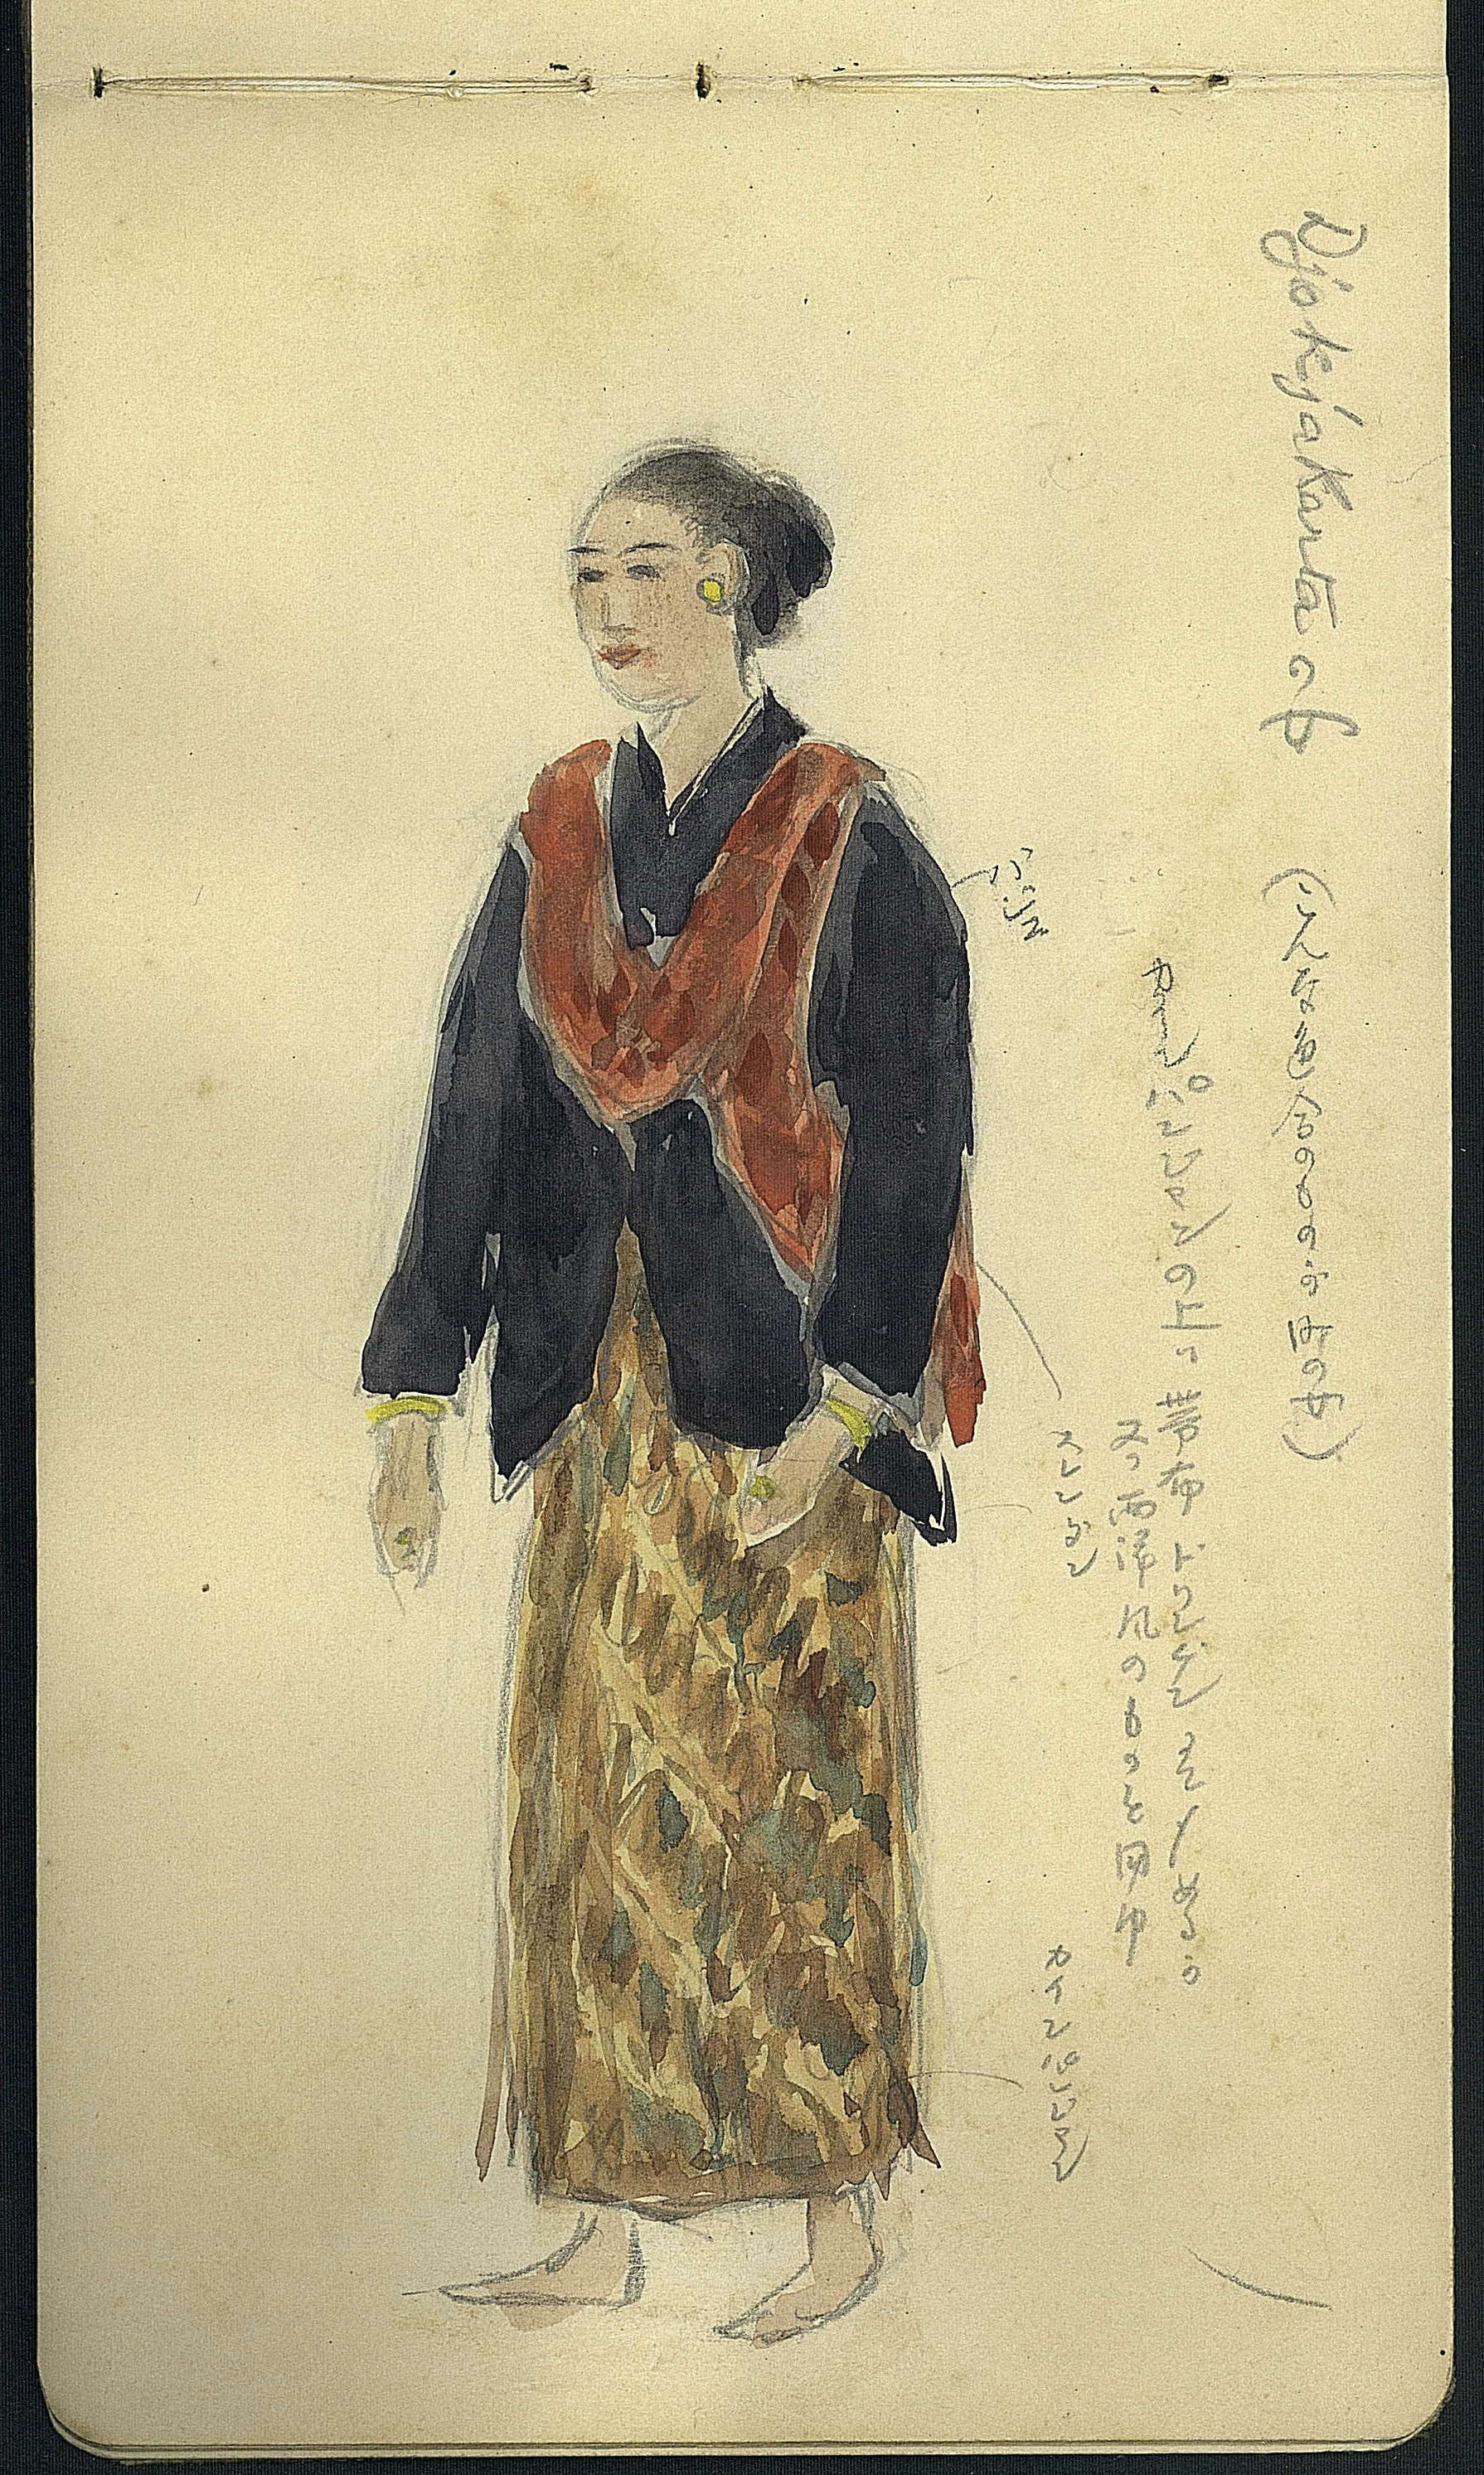 Djokjakarta の女
(こんな色合のものが町の女)
カインパンジャンの上に帯布ドリンギンをしめる。
又、両浦風のものを用ゆ
バジュ
スレンダン
カインパンジャン